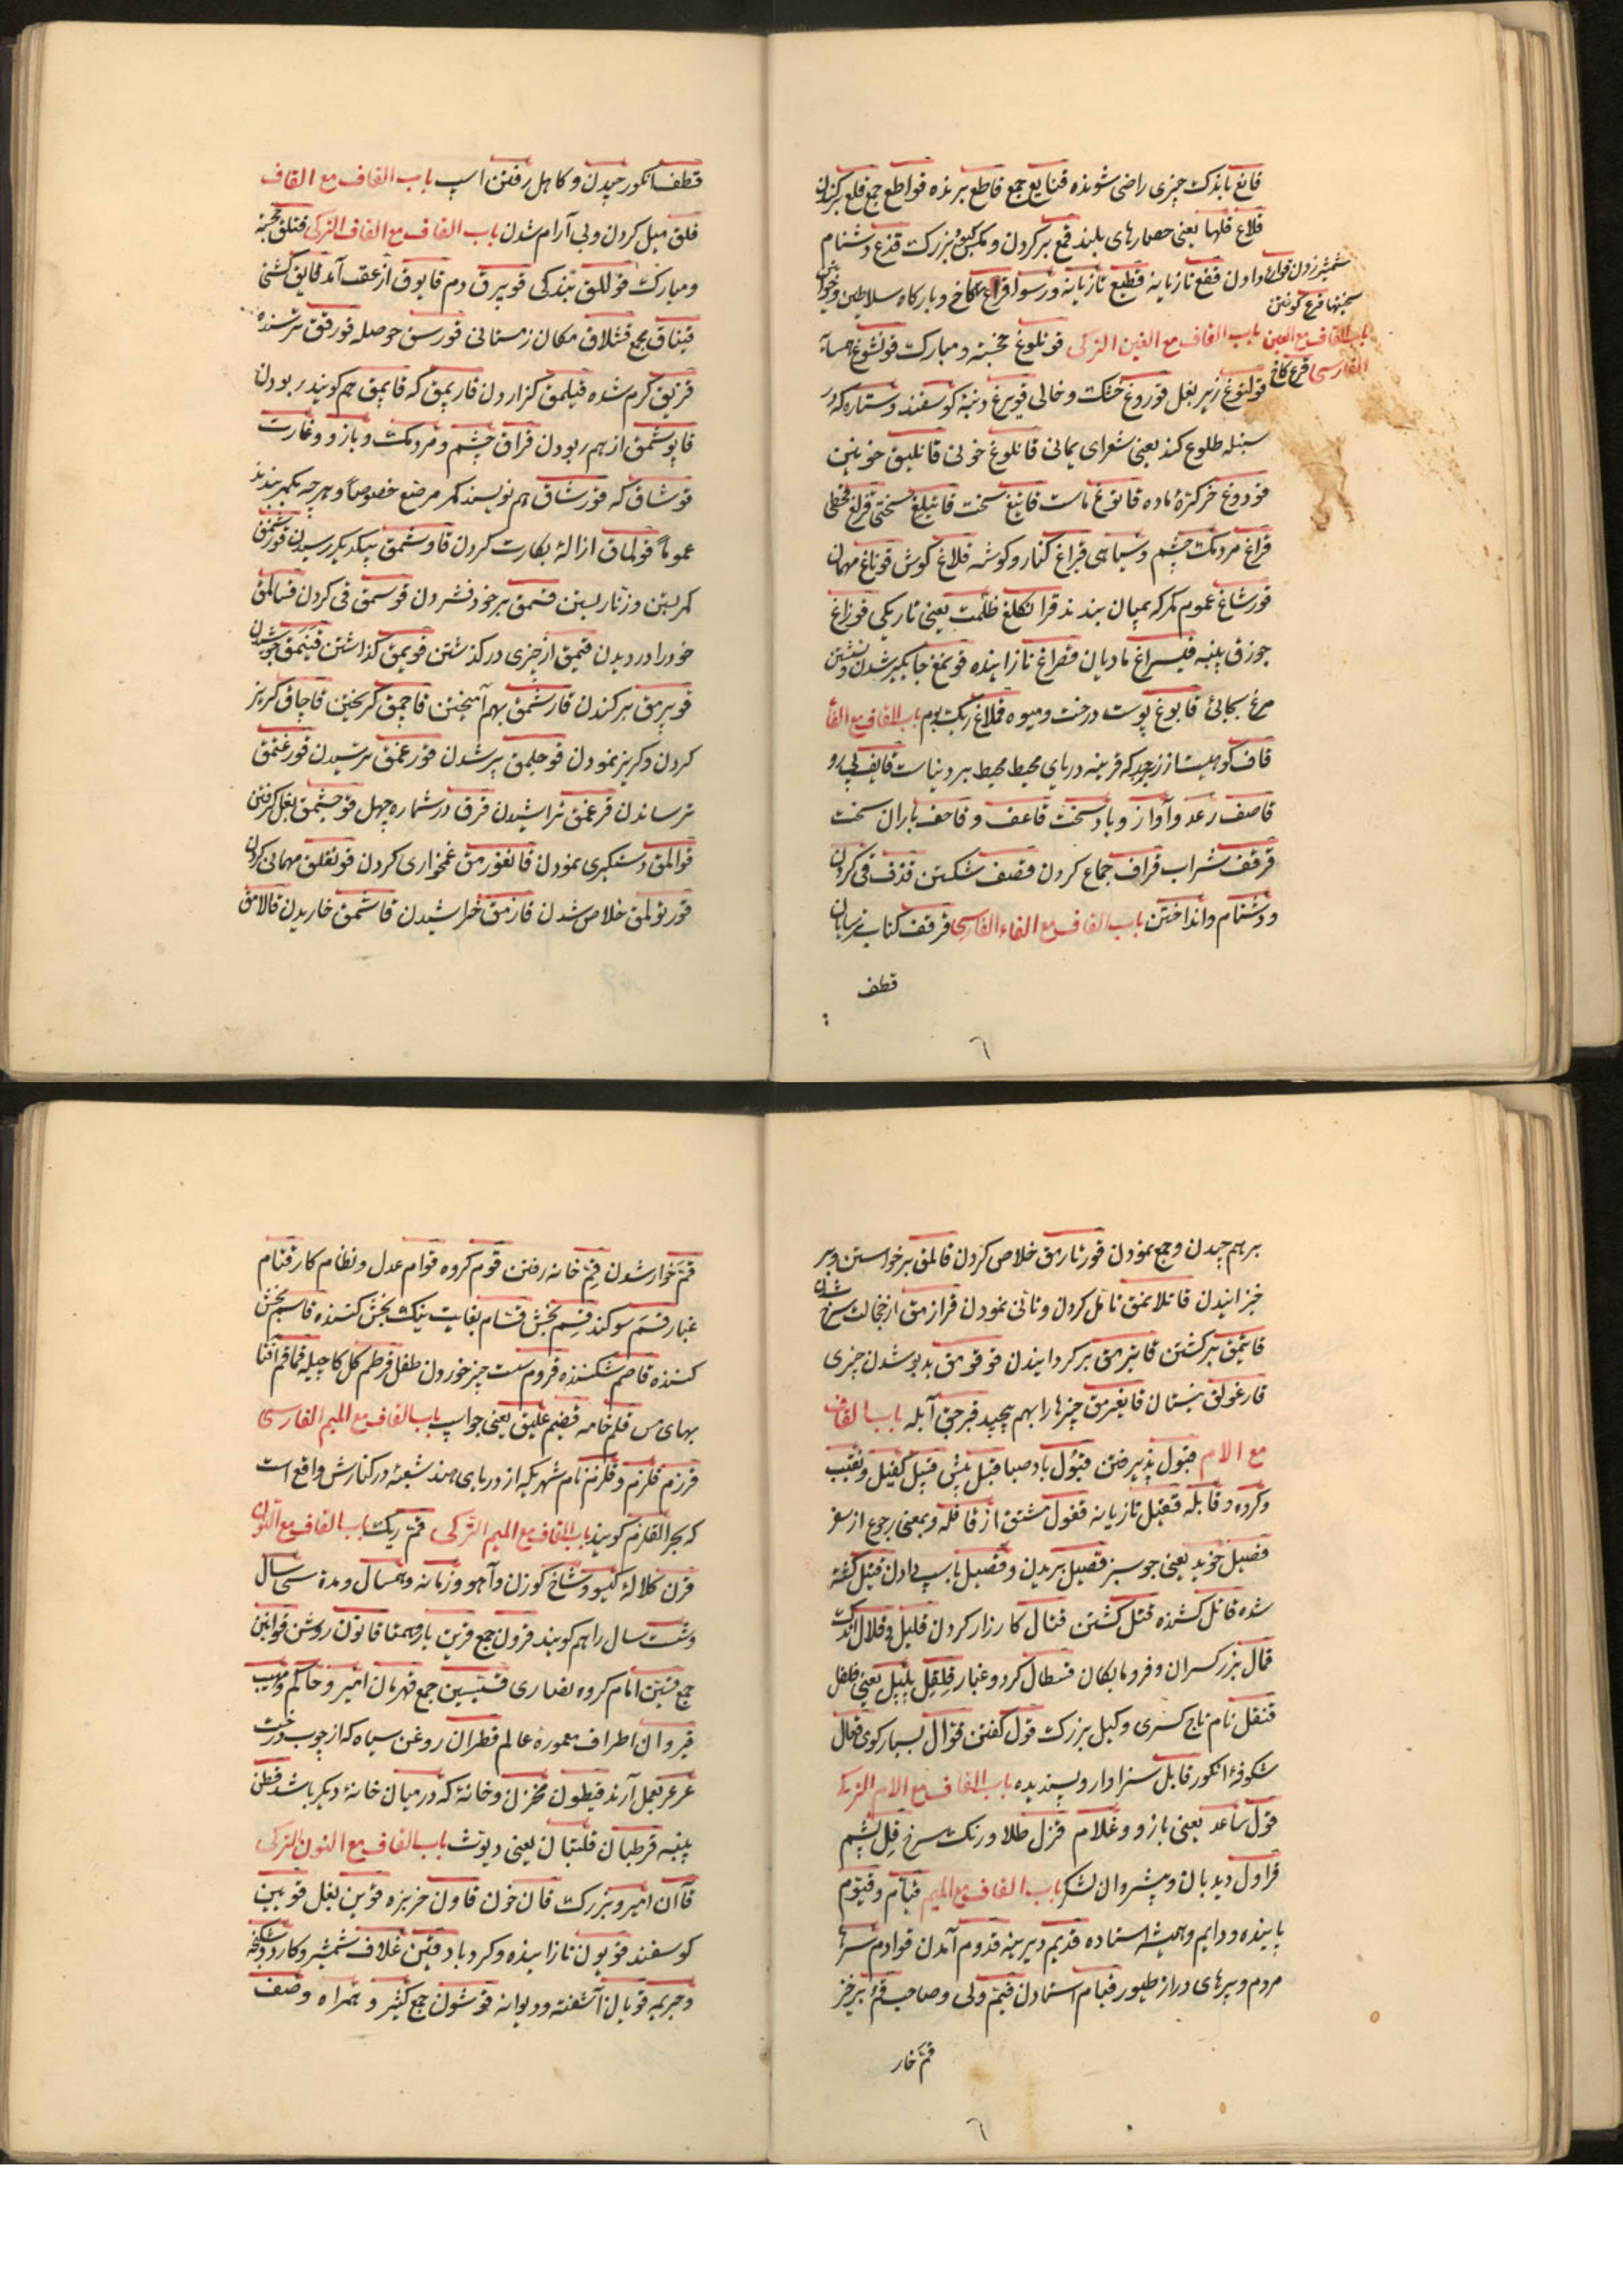 قانع باندک چیزی راضی شونده قنایع جمع قاطع برنده قواطع جمع قلع برکندن
قلاع قلها یعنی حصارهای بلند قمع برکردن و مکس کبود بزرک قذع دشنام
دادن قفع تازیانه قطیع تازیانه و رسوا کاخ و بارکاه سلاطین و خوان
شمشیر زدن قوارع
سختیها قرع کوفتن
باب القاف مع الغین باب القاف مع الغین الترکی قوتلوغ خجسته و مبارک قونشوغ همسا
الفارسی قرغ کاخ
قولتوغ زیر بغل قوروغ خشک و خالی قویرغ دنبهٔ کوسفند و ستاره که در
سنبله طلوع کند یعنی شعرای یمانی قانلوغ خونی قانلیق خونین
قودوغ خرکرهٔ ماده قاتوغ ماست قاتیغ سخت قاتیلغ سختی
قراغ مردمک چشم و سیاهی قیراغ کنار و کوشه قلاغ کوش قوناغ مهمان
قورشاغ عموم کمر که بمیان بندند قرانکلغ ظلمت یعنی تاریکی قوزاغ
جوزق پنبه قیسراغ مادیان قصراغ نازاینده قونمغ جایکیر شدن و نشستن
مرغ بجائی قابوغ پوست درخت و میوه قملاغ ریک بوم باب القاف مع الفا
قاف کوهیست از زبرجد که قرینه دریای محیط محیط بر دنیاست قایف پی رو
قاصف رعد و آواز و باد سخت قاعف و قاحف باران سخت
قرقف شراب قراف جماع کردن قصف شکستن قذف قی کردن
و دشنام و انداختن باب القاف مع الفاء الفارسی قرقف کتاب ترسایان
قطف
٦
قطف انکور چیدن و کاهل رفتن اسپ باب القاف مع القاف
قلق میل کردن و بی آرام شدن باب القاف مع القاف الترکی قتلق خجسته
و مبارک قوللق بندکی قویرق دم قایوق از عقب آمد قایق کشتی
قیناق جمع قشلاق مکان زمستانی قورسق حوصله قورقق ترسنده
قزیق کرم شده قیلمق کزاردن قاریمق که قاپمق هم کویند ربودن
قاپوشمق از هم ربودن قراق چشم و مردمک و بازو و غارت
قوشاق که قورشاق هم نویسند کمر مرصع خصوصاً و هر چه بکمر بندند
عموماً قولماق ازالهٔ بکارت کردن قاوشمق بیکدیکر رسیدن قورشمق
کمر بستن و زنار بستن قسمق بر خود فشردن قوسمق قی کردن قسالمق
خود را دزدیدن قیمق از چیزی در کذشتن قویمق کذاشتن قینمق جوشیدن
قوپرمق برکندن قارشمق بهم آمیختن قاچمق کریختن قاچاق کریز
کردن و کریز نمودن قوجلمق پیر شدن قورغمق ترسیدن قورغتمق
ترساندن قرغمق تراشیدن قرق در شماره چهل قوجشمق بغل کرفتن
قوالمق دستکیری نمودن قانغورمق غمخواری کردن قونقلق مهمانی کردن
قورتولمق خلاص شدن قازمق خراشیدن قاشمق خاریدن قالامق
بر هم چیدن و جمع نمودن قورتارمق خلاص کردن قالمق برخواستن و بر
خیزانیدن قانلانمق تامّل کردن و تانّی نمودن قزارمق از خجالت سرخ شدن
قایتمق برکشتن قایترمق برکردانیدن قوقومق بدبو شدن چیزی
قارغولق نیستان قایغرمق چیزها را بهم پیچید قبرجق آبله باب القاف
مع الام قبول پذیرفتن قبول باد صبا قبل پیش قبیل کفیل و نقیب
و کروه و قابله قعقبل تازیانه قفول مشتق از قافله و بمعنی رجوع از سفر
قصیل خوید یعنی جو سبز قصیل بریدن و قصیل باسپ دادن قتیل کشته
شده قاتل کشنده قتل کشتن قتال کارزار کردن قلیل و قلال اندک
قمال بزرک سران و فرومایکان قسطال کرد و غبار قلقل پلپل یعنی فلفل
قنقل نام تاج کسری و کیل بزرک قول کفتن قوال بسیار کوی قعال
شکوفهٔ انکور قابل سزاوار و پسندیده باب القاف مع الام الترکی
قول ساعد یعنی بازو و غلام قزل طلا و رنک سرخ قل پشم
قراول دیدبان و پیشروان لشکر باب القاف مع المیم قیام و قیوم
پاینده و دایم و همیشه استاده قدیم دیرینه قدوم آمدن قوادم سرها
مردم و پرهای دراز طیور قیام استادن قیم ولی و صاحب قم برخیز
قم خار
٦
قم خوار شدن قم خانه رفتن قوم کروه قوام عدل و نظام کار قتام
غبار قسم سوکند قسم بخش قسام بغایت نیک بخش کننده قاسم بخش
کننده قاصم شکننده قروم سست چیز خوردن طفل قرطم کل کاجیله قماقم آفتابه
بهای مس قلم خامه قضیم علیق یعنی جو اسپ باب القاف مع المیم الفارسی
قرزم قلزم و قلزم نام شهریکه از دریای هند شعبهٔ در کنارش واقع است
که بحر القلزم کویند باب القاف مع المیم الترکی قم ریک باب القاف مع النون
قرن کلالهٔ کیسو و شاخ کوزن و آهو و زمانه و همسال و مدة سی سال
و شست سال را هم کویند قرون جمع قرین یار و همتا قانون روش قوانین
جمع قسّ امام کروه نصاری قسّیسین جمع قهرمان امیر و حاکم و مهیب
قیروان اطراف معمورهٔ عالم قطران روغن سیاه که از چوب درخت
عرعر بعمل آرند قیطون مخزن و خانهٔ که در میان خانهٔ دیکر باشد قطن
پنبه قرطبان قلتبان یعنی دیوث باب القاف مع النون الترکی
قاآن امیر و بزرک قان خون قاون خربزه قوین بغل قوین
کوسفند قویون نازاینده و کرد باد قین غلاف شمشیر و کارد و شکنجه
و جریمه قوبان آشفته و دیوانه قوشون جمع کثیر و همراه و صف